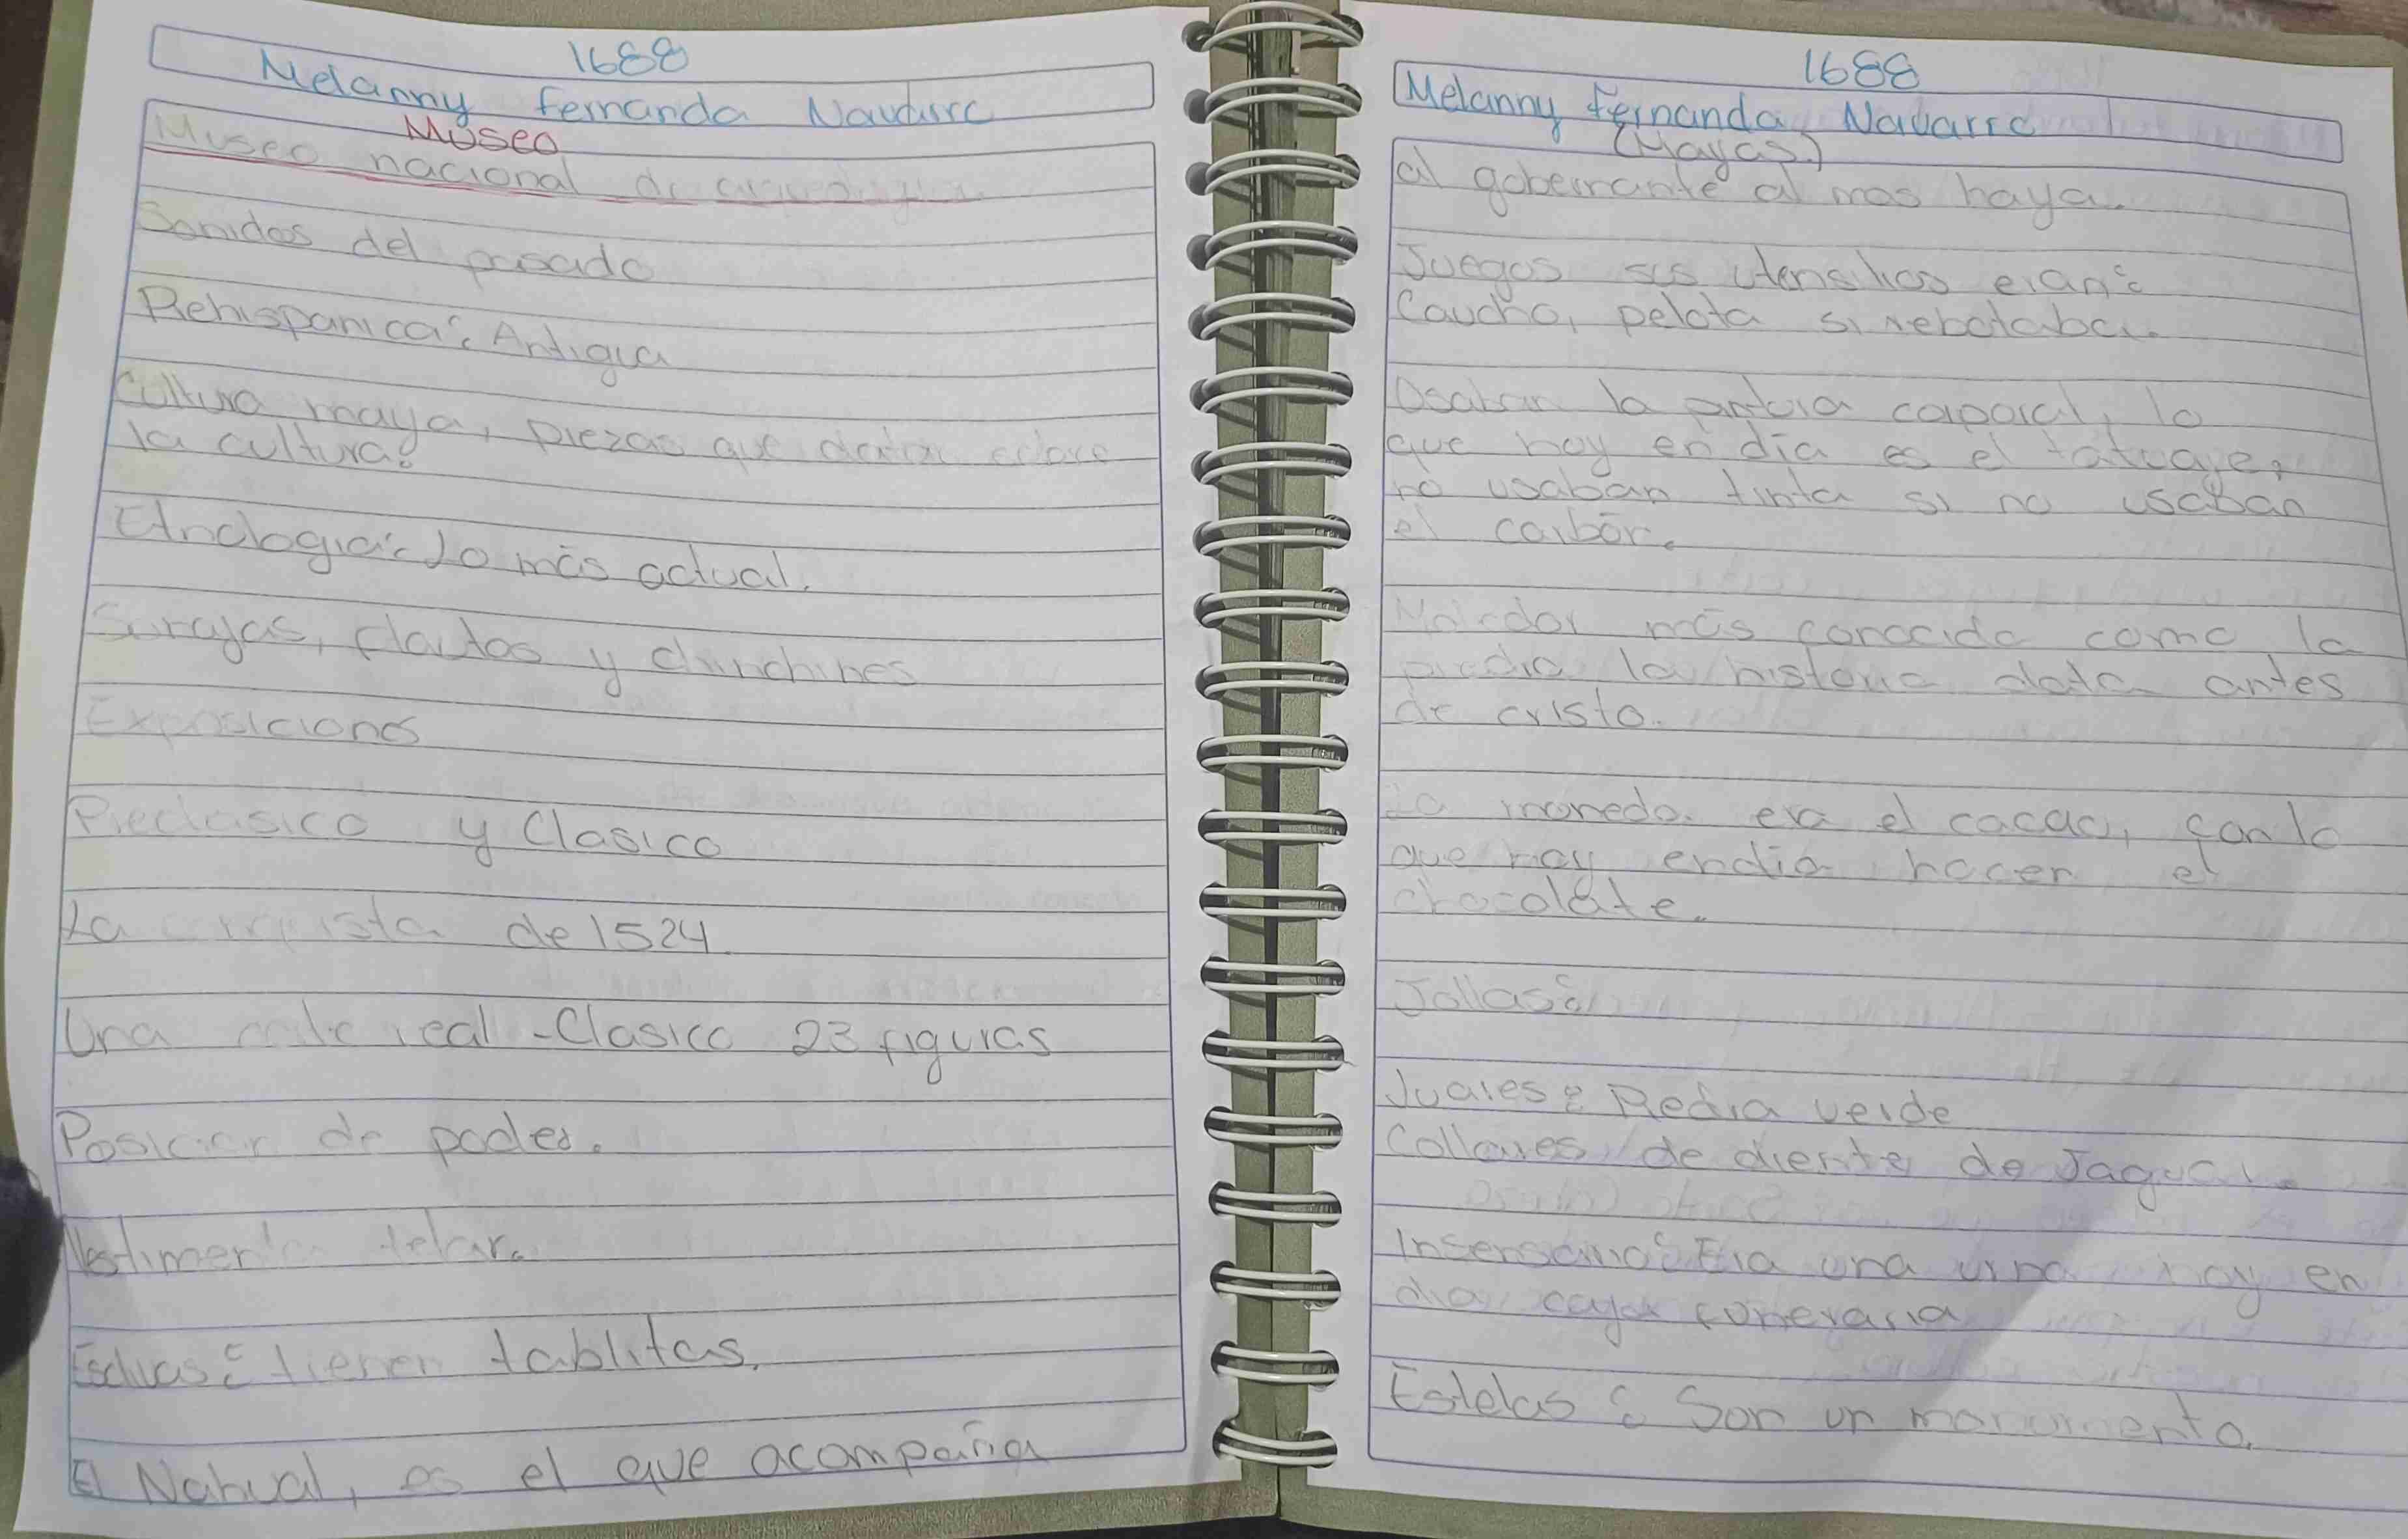 1688
Melanny Fernanda Navarro
Museo
Museo nacional de
Sonidos del pasado
Prehispanica: Antigua
Cultura maya, piezas que datan sobre
la cultura:
Etnologia: Lo más actual.
Sonajas, flautas y chinchines
Exposiciones
Preclasico y Clasico
La conquista de 1524.
Una corte real - Clasico 23 figuras
Posicion de poder.
Vestimenta telar.
tienen tablitas.
El Nahual, es el que acompaña
1688
Melanny Fernanda Navarro
(Mayas)
al gobernante al mas haya.
Juegos sus utensilios eran:
Caucho, pelota si rebotaba.
Usaban la pintura caporal, lo
que hoy en día es el tatuaje,
no usaban tinta si no usaban
el carbón.
más conocida como la
piedra la historia data antes
de cristo.
La moneda era el cacao, con lo
que hoy endia hacen el
chocolate.
Jollas:
Juares: Piedra verde
Collares de diente de Jaguar.
Insensario: Era una urna hoy en
dia caja funeraria
Estelas: Son un monumento.